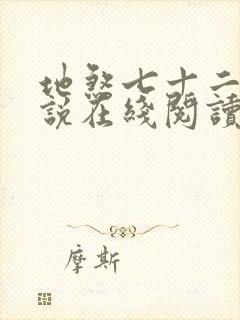 地煞七十二
説在綫閱讀
摩斯